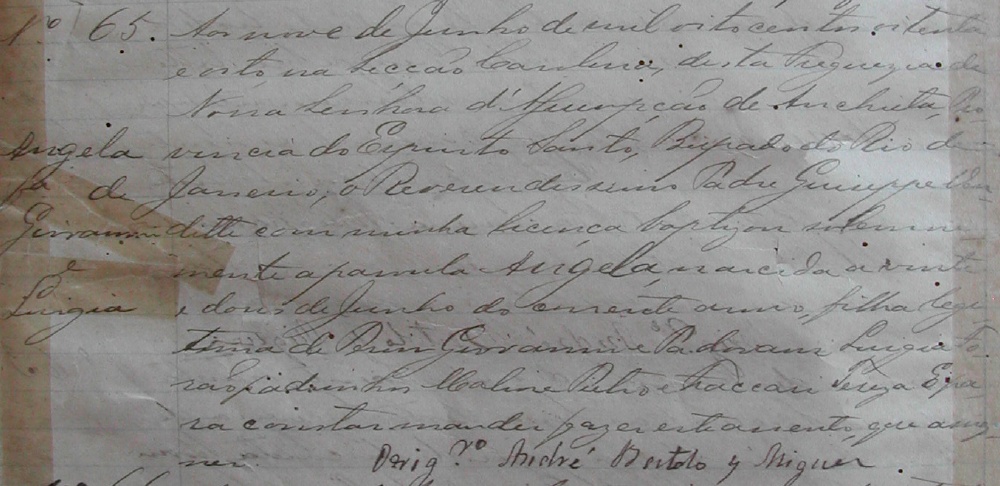 Nº 65. Aos nove de Junho de mil oitocentos oitenta
e oito na Secção Carolina, desta Freguezia de
Nossa Senhora d'Assumpção de Anchieta, Pro
Angela vincia do Espirito Santo, Bispado do Rio de
fa de Janeiro, o Reverendissimo Padre Giuseppe Ven
Giovanni ditti com minha licença baptizou solemne
e mente a parvula Angela, nascida a vinte
Luigia e dous de Junho do corrente anno, filha legi
tima de Perin Giovanni e Padovani Luigia fo
rão padrinhos Pietro e Tereza E pa
ra constar mandei fazer este assento, que assig
nei. André Bertolo y Miguez